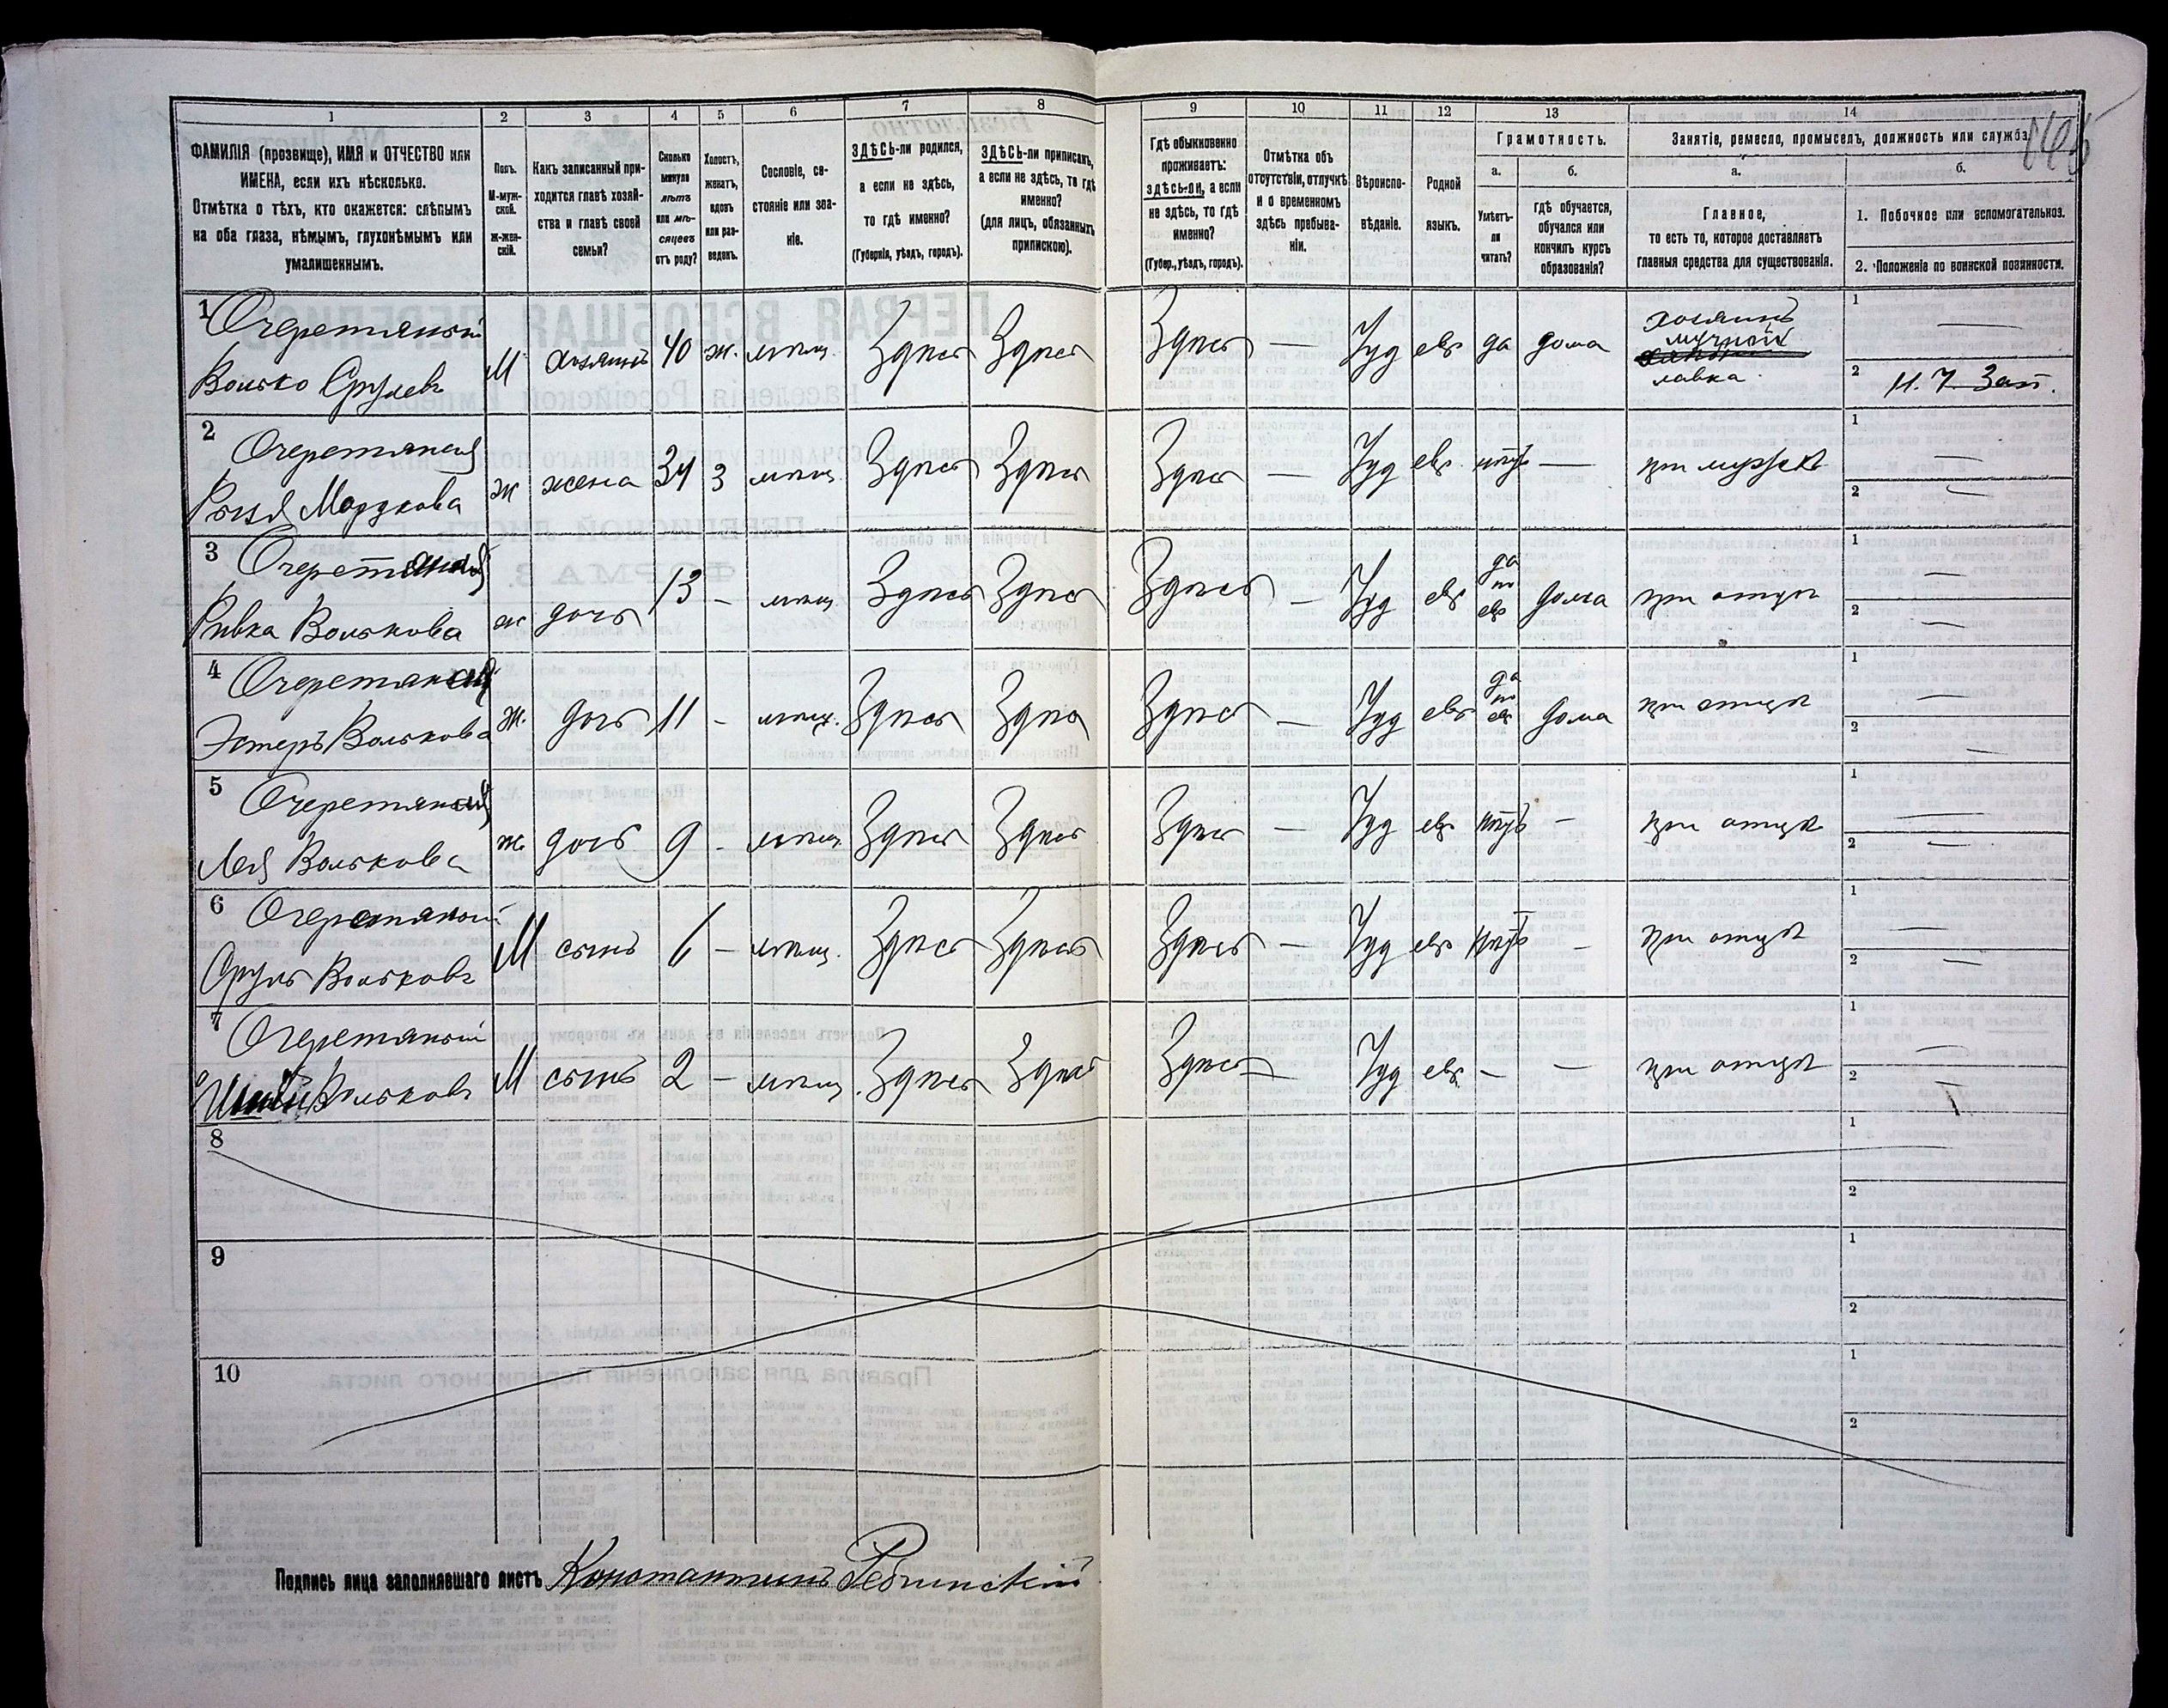 1 2 3 4 5 6 7 8 9 10 11 12 13 14
ФАМИЛІЯ (прозвище), ИМЯ и ОТЧЕСТВО или
ИМЕНА, если ихъ нѣсколько.
Отмѣтка о тѣхъ, кто окажется: слѣпымъ
на оба глаза, нѣмымъ, глухонѣмымъ или
умалишеннымъ.
Полъ.
М-муж-
ской.
Ж-жен-
скій.
Какъ записанный при-
ходится главѣ хозяй-
ства и главѣ своей
семьи?
Сколько
минуло
лѣтъ
или мѣ-
сяцевъ
отъ роду?
Холостъ,
женатъ,
вдовъ
или раз-
веденъ.
Сословіе, со-
стояніе или зва-
ніе.
ЗДѢСЬ-ли родился,
а если не здѣсь,
то гдѣ именно?
(Губернія, уѣздъ, городъ).
ЗДѢСЬ-ли приписанъ,
а если не здѣсь, то гдѣ
именно?
(для лицъ, обязанныхъ
припискою).
Гдѣ обыкновенно
проживаетъ:
здѣсь-ли, а если
не здѣсь, то гдѣ
именно?
(Губер., уѣздъ, городъ).
Отмѣтка объ
отсутствіи, отлучкѣ
и о временномъ
здѣсь пребыва-
ніи.
Вѣроиспо-
вѣданіе.
Родной
языкъ.
Грамотность.
а.
Умѣетъ-
ли
читать?
б.
гдѣ обучается,
обучался или
кончилъ курсъ
образованія?
Занятіе, ремесло, промыселъ, должность или служба.
а.
Главное,
то есть то, которое доставляетъ
главныя средства для существованія.
б.
1. Побочное или вспомогательное.
2. Положеніе по воинской повинности.
1 Очеретяный
Волько Срулевъ
М хозяинъ 40 ж. мѣщ. Здѣсь Здѣсь Здѣсь — Іуд евр да дома
хозяинъ
мучной
лавка
1 —
2 н. ч. зап.
2 Очеретяная
Рыся Мордкова
ж жена 34 з мѣщ. Здѣсь Здѣсь Здѣсь — Іуд евр нѣтъ — при мужѣ
1 —
2 —
3 Очеретяная
Ривка Волькова
ж дочь 13 - мѣщ Здѣсь Здѣсь Здѣсь — Іуд евр да по евр дома при отцѣ
1 —
2 —
4 Очеретяная
Эстеръ Волькова
ж. дочь 11 - мѣщ. Здѣсь Здѣсь Здѣсь — Іуд евр да по евр дома при отцѣ
1 —
2 —
5 Очеретяная
Лея Волькова
ж. дочь 9 - мѣщ Здѣсь Здѣсь Здѣсь — Іуд евр нѣтъ - при отцѣ
1 —
2 —
6 Очеретяный
Сруль Вольковъ
М сынъ 6 - мѣщ. Здѣсь Здѣсь Здѣсь — Іуд евр нѣтъ - при отцѣ
1 —
2 —
7 Очеретяный
Вольковъ
М сынъ 2 - мѣщ. Здѣсь Здѣсь Здѣсь — Іуд евр. - — при отцѣ
1 —
2
8
1
2
9
1
2
10
1
2
Подпись лица заполнявшаго листъ Константинъ